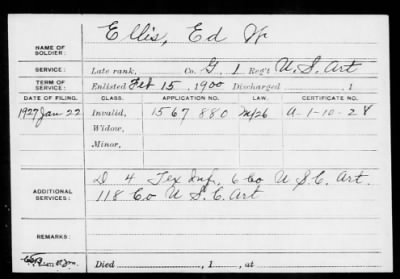 Ellis, Ed W
NAME OF SOLDIER:
SERVICE: Late rank, Co. G, 1 Reg't U.S. Art
TERM OF SERVICE: Enlisted Feb 15, 1900 Discharged , 1
DATE OF FILING. CLASS. APPLICATION NO. LAW. CERTIFICATE NO.
1927 Jan 22 Invalid, 1567 880 A-1-10-28
Widow,
Minor,
D 4 Tex Inf, 6 Co U.S.C. Art.
ADDITIONAL SERVICES: 118 Co U.S.C. Art
REMARKS:
Died , 1 , at